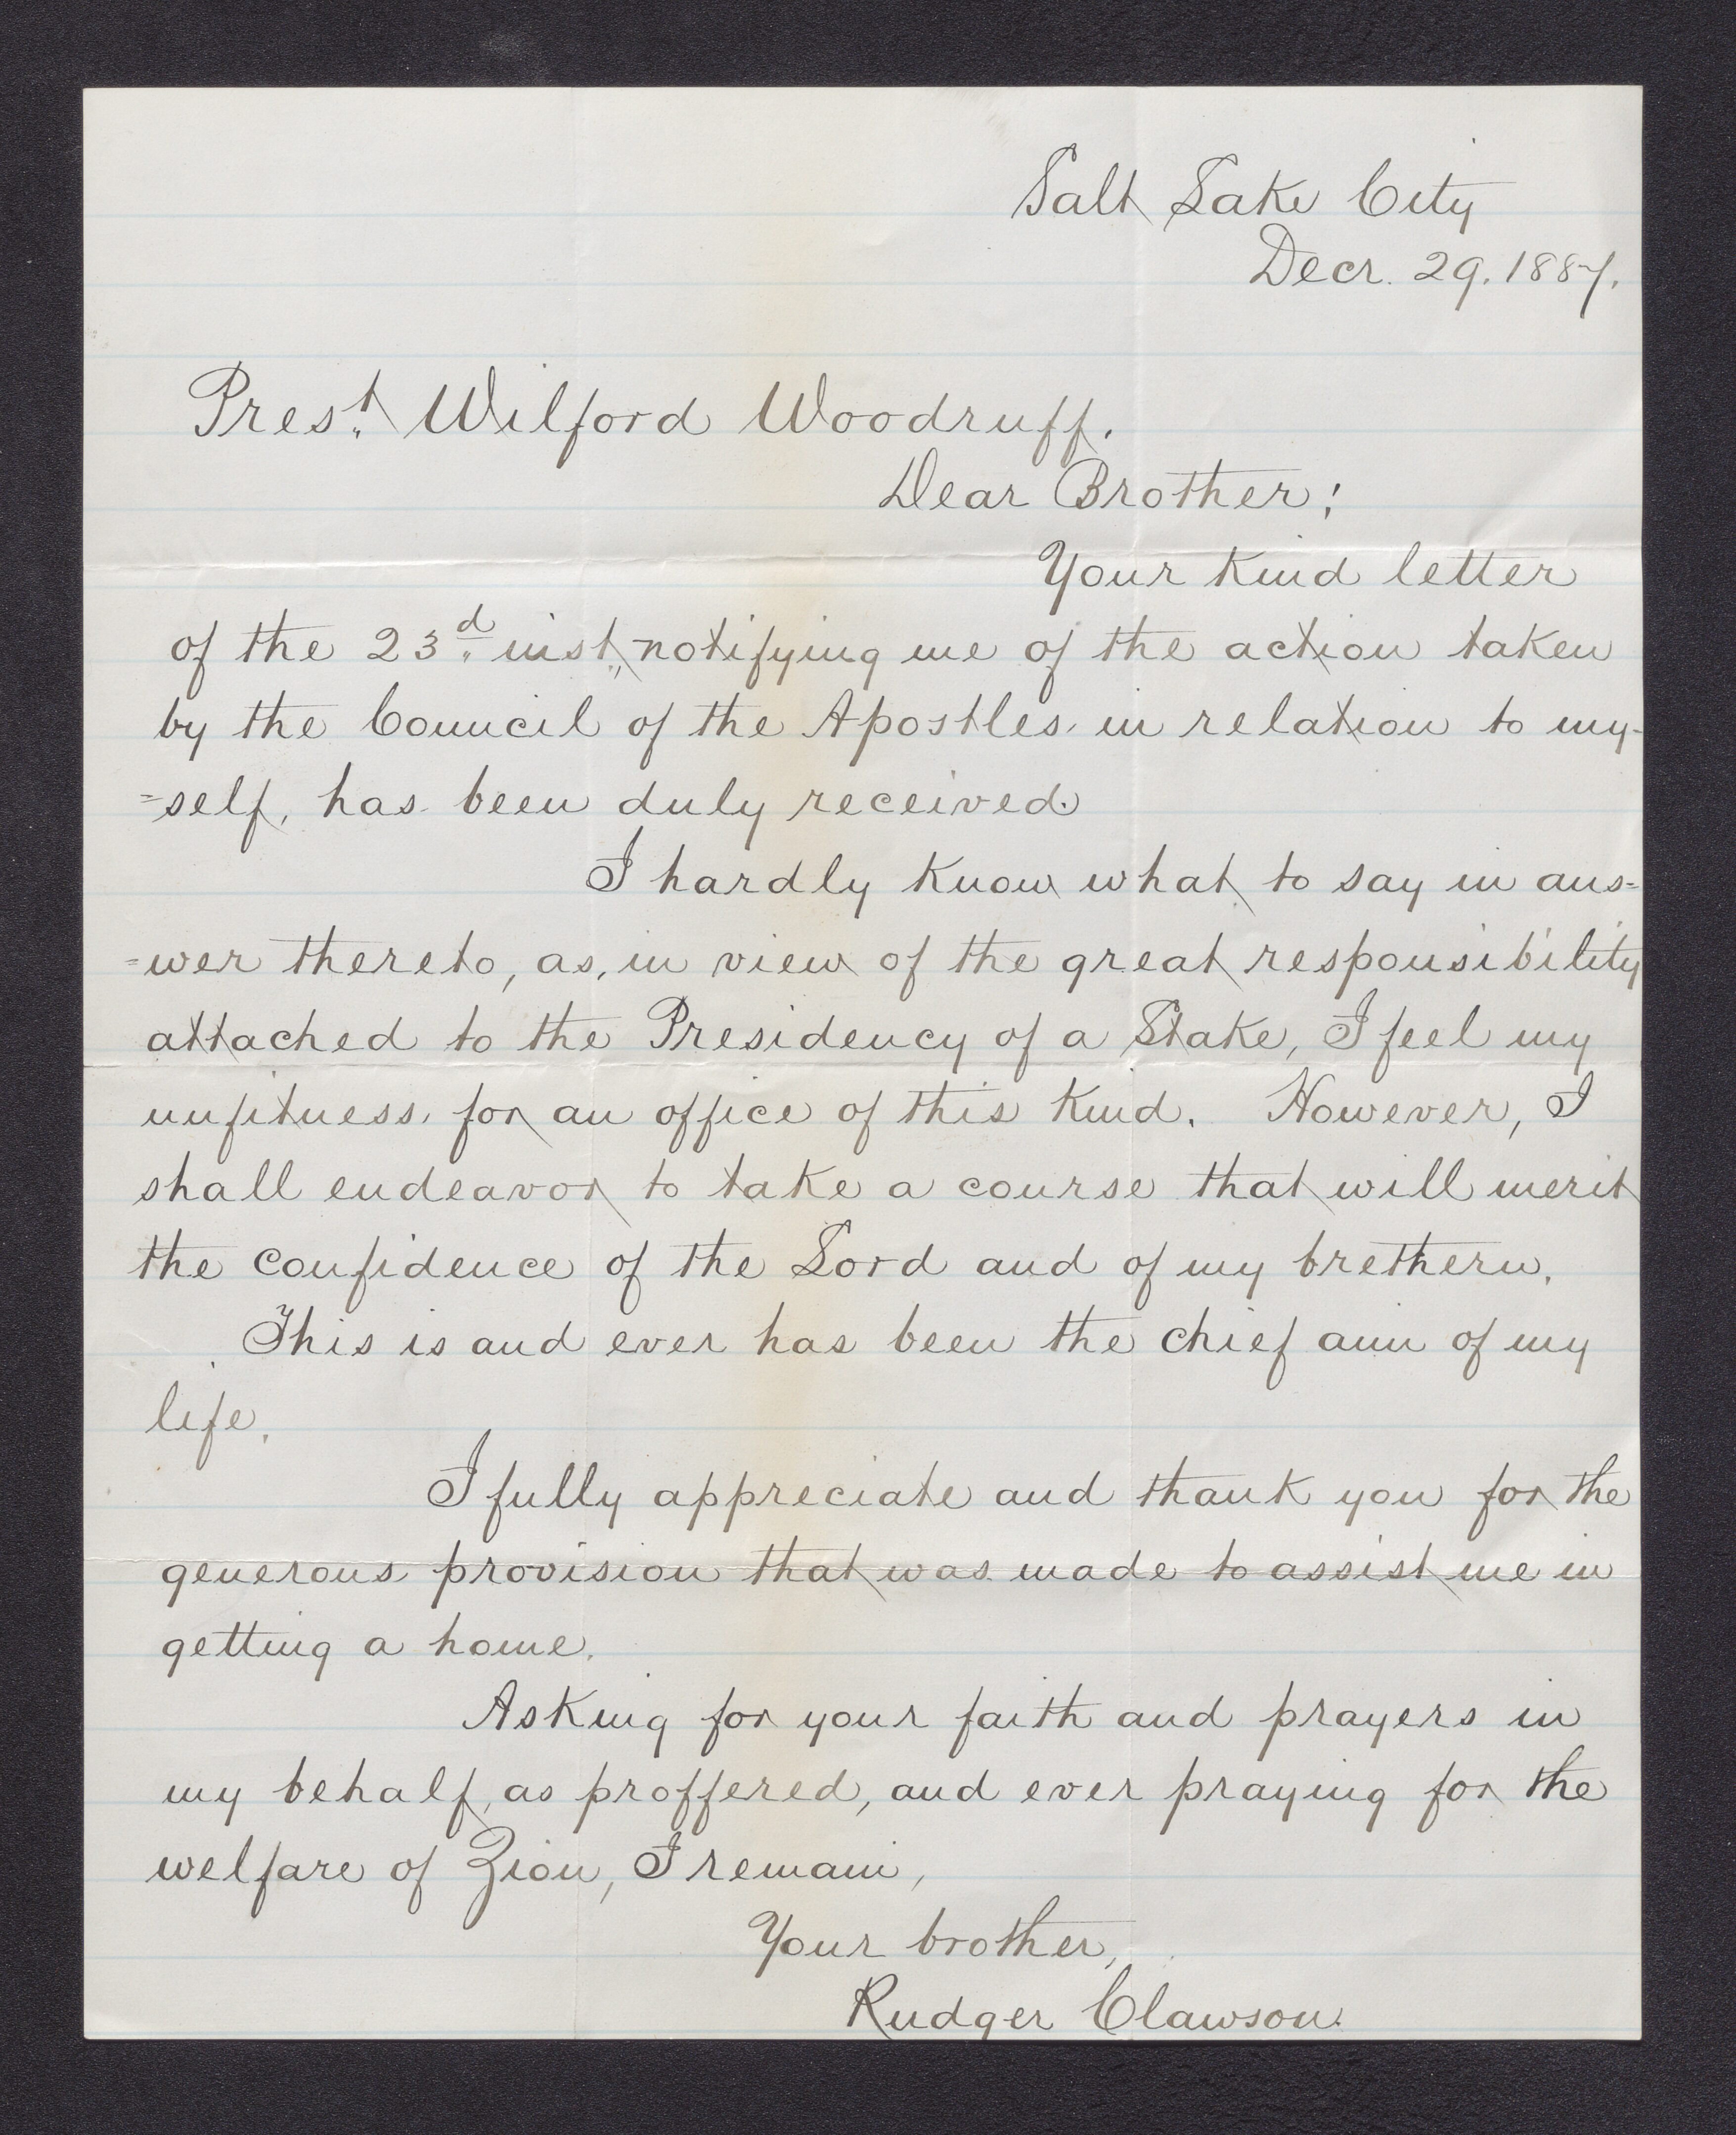 Salt Lake City
Decr. 29. 1887.
Prest. Wilford Woodruff.
Dear Brother;
Your kind letter
of the 23d. inst., notifying me of the action taken
by the Council of the Apostles in relation to my-
=self, has been duly received.
I hardly know what to say in ans=
=wer thereto, as, in view of the great responsibility
attached to the Presidency of a Stake, I feel my
unfitness for an office of this kind. However, I
shall endeavor to take a course that will merit
the confidence of the Lord and of my brethern.
This is and ever has been the chief aim of my
life.
I fully appreciate and thank you for the
generous provision that was made to assist me in
getting a home.
Asking for your faith and prayers in
my behalf, as proffered, and ever praying for the
welfare of Zion, I remain,
Your brother,
Rudger Clawson.